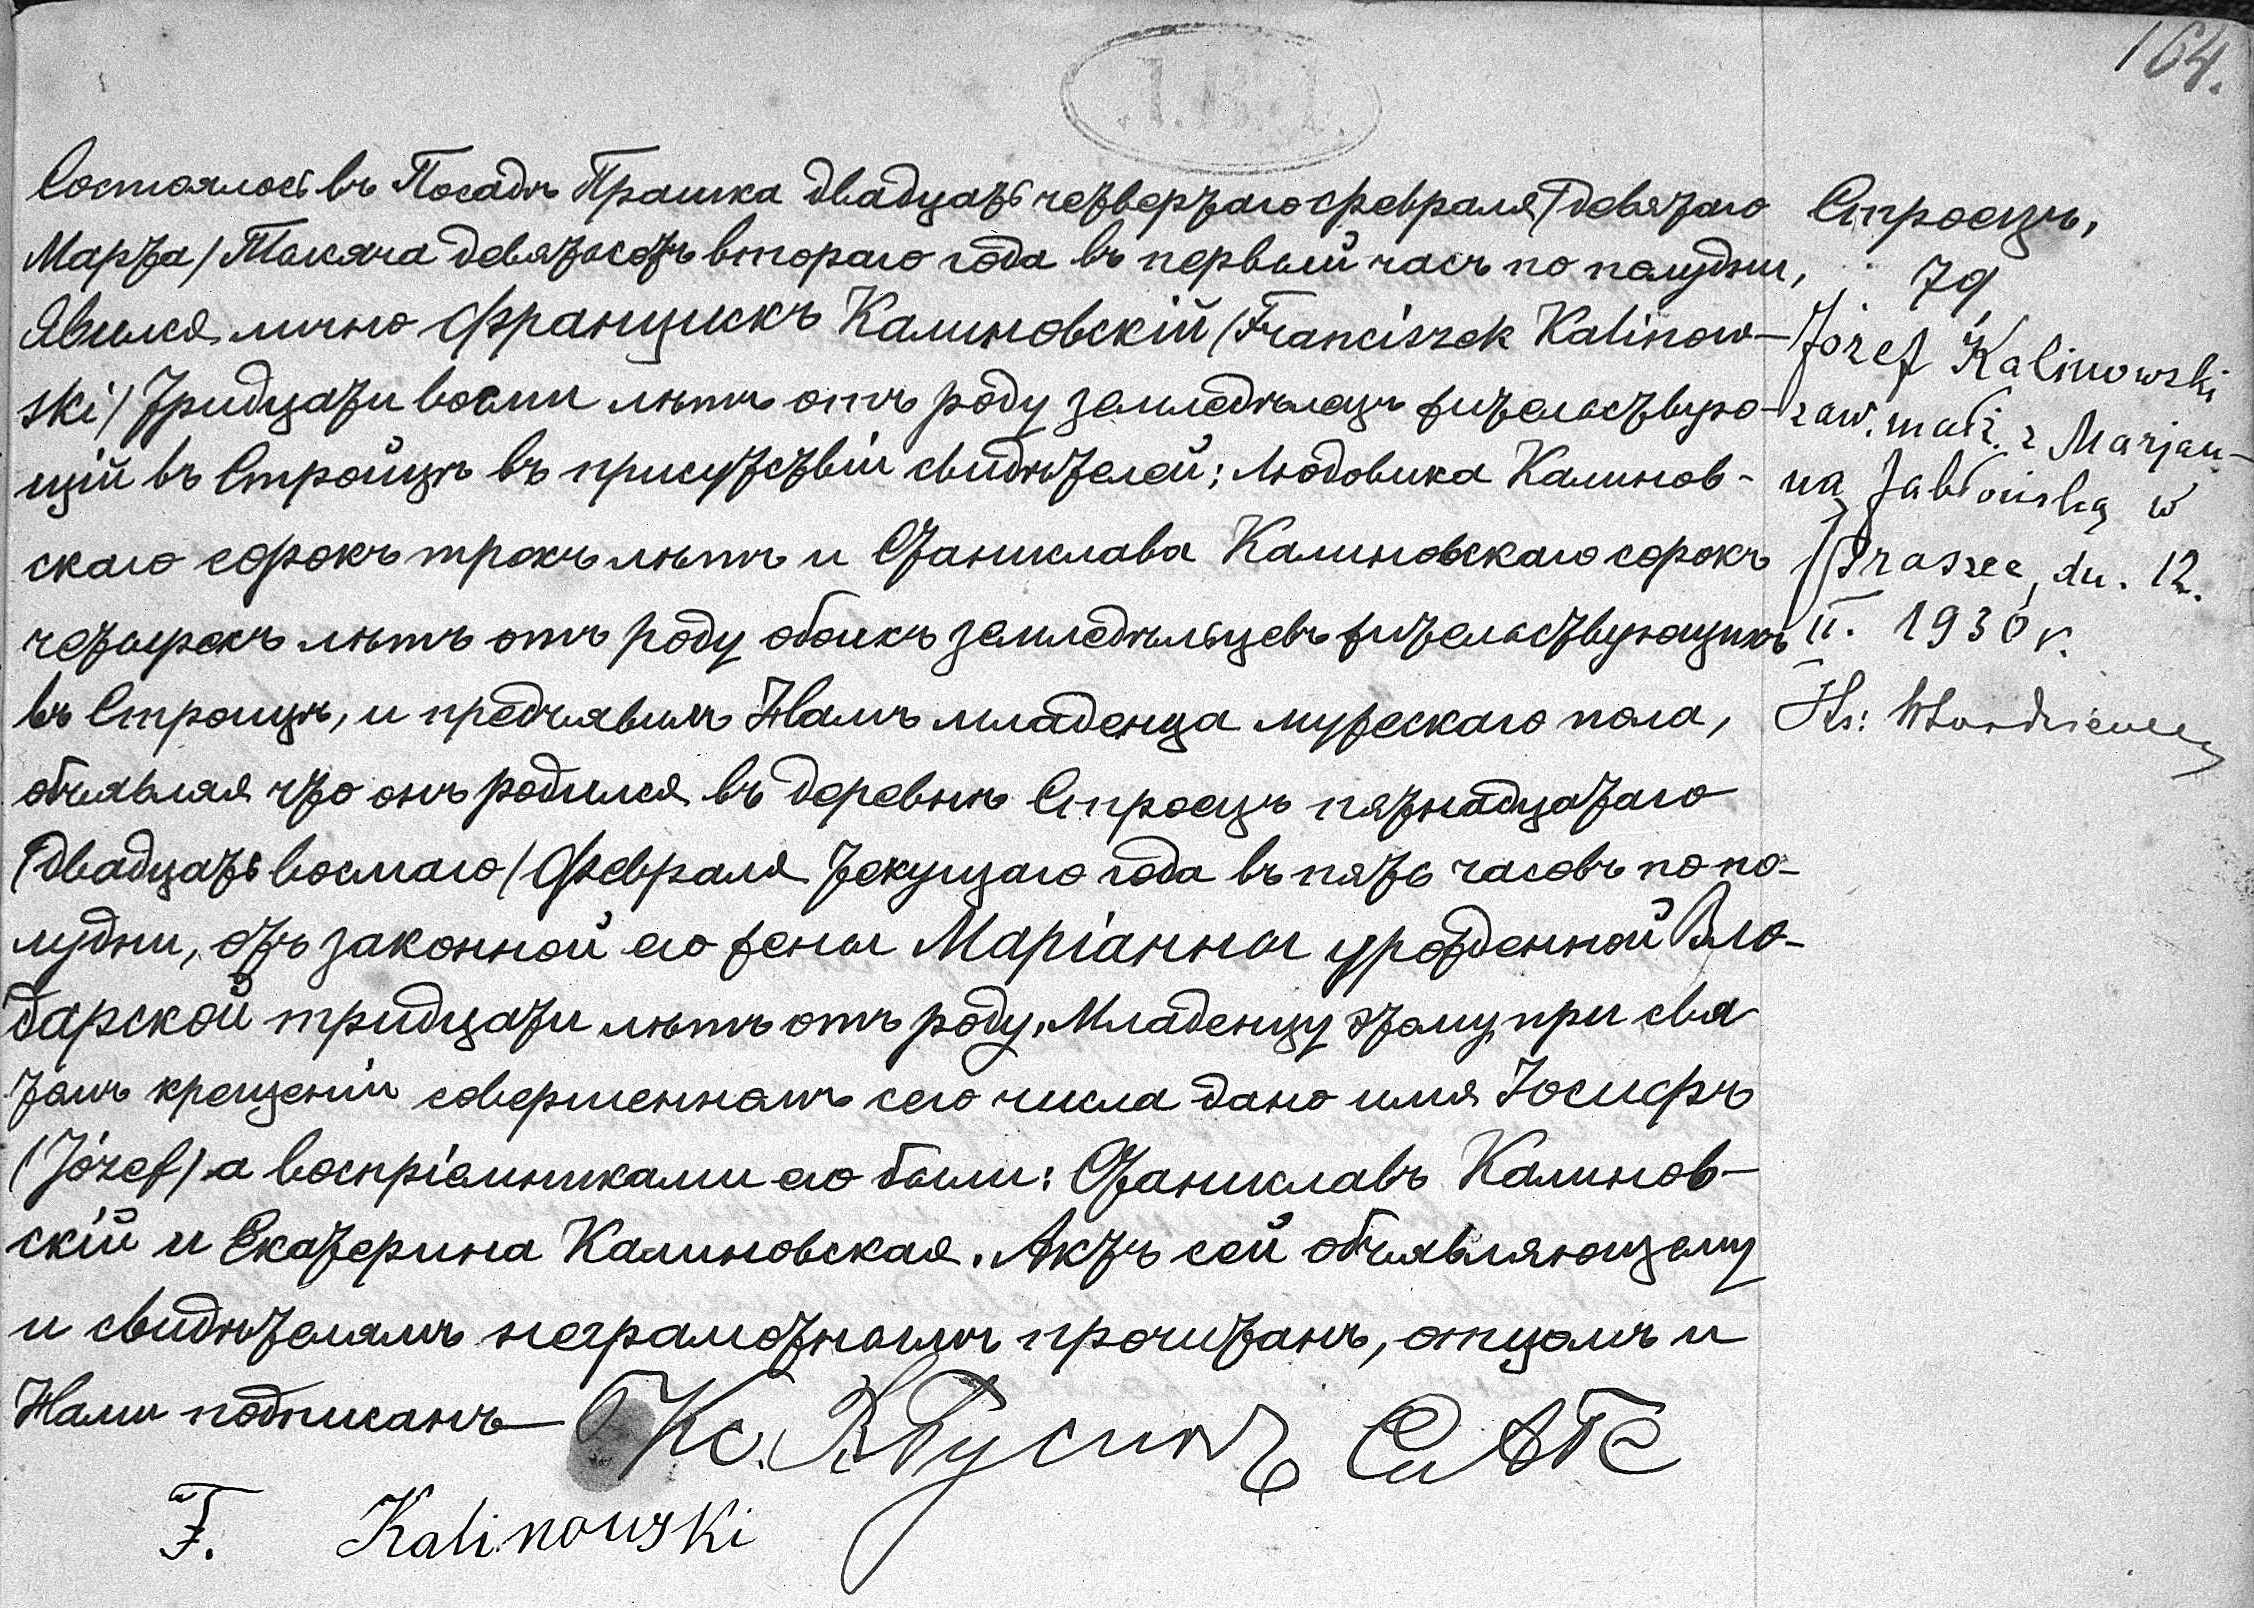 164.
Состоялось въ Посадѣ Прашка двадцать четвертаго февраля /девятаго
Марта/ Тысяча девятьсотъ втораго года въ первый часъ по полудни,
Явился лично Францискъ Калиновскій /Franciszek Kalinow-
ski/ тридцати восьми лѣтъ отъ роду земледѣлецъ жительствую-
щій въ Стройцѣ въ присутствіи свидѣтелей: Людовика Калинов-
скаго сорокъ трехъ лѣтъ и Станислава Калиновскаго сорокъ
четырехъ лѣтъ отъ роду обоихъ земледѣльцевъ жительствующихъ
въ Строицѣ, и предъявилъ Намъ младенца мужескаго пола,
объявляя что онъ родился въ деревнѣ Строецъ пятнадцатаго
/двадцать восмаго/ Февраля текущаго года въ пять часовъ по по-
лудни, отъ законной его жены Маріанны урожденной Вло-
дарской тридцати лѣтъ отъ роду. Младенцу этому при свя
томъ крещеніи совершенномъ сего числа дано имя Іосифъ
/Józef/ а воспріемниками его были: Станиславъ Калинов-
скій и Екатерина Калиновская. Актъ сей объявляющему
и свидѣтелямъ неграмотнымъ прочитанъ, отцомъ и
Нами подписанъ
Кс.
F. Kalinowski
Строецъ,
79
Józef Kalinowski
zaw. małż. z Marjan-
ną Jabłońską w
Praszce, dn. 12.
II. 1930 r.
Ks: